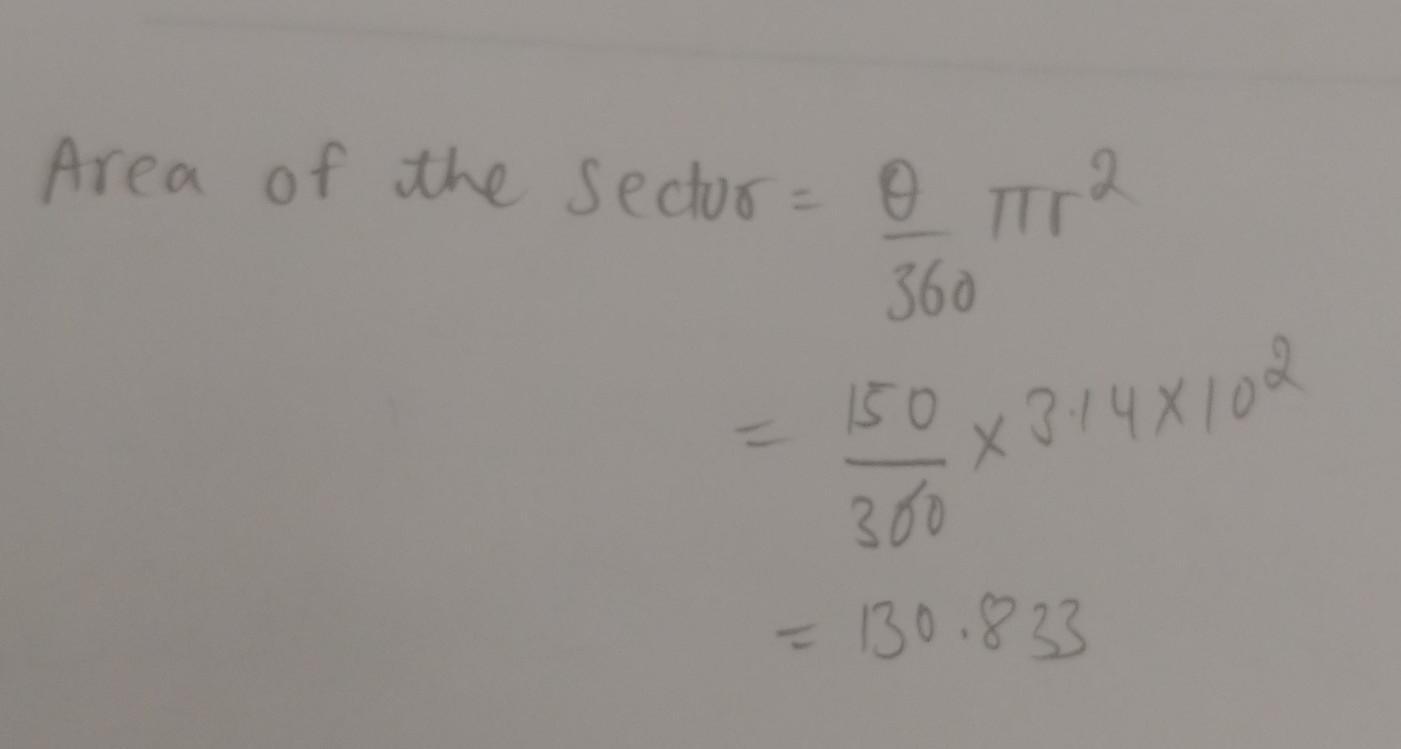 Area of the Sector = θ/360 πr²
= 150/360 × 3.14 × 10²
= 130.833